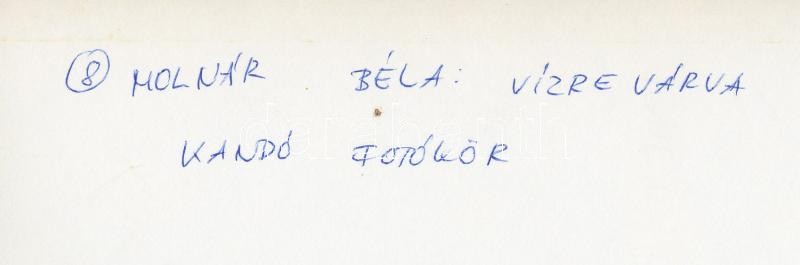 ⑧ MOLNÁR BÉLA: VÍZRE VÁRVA
KANDÓ FOTÓKÖR